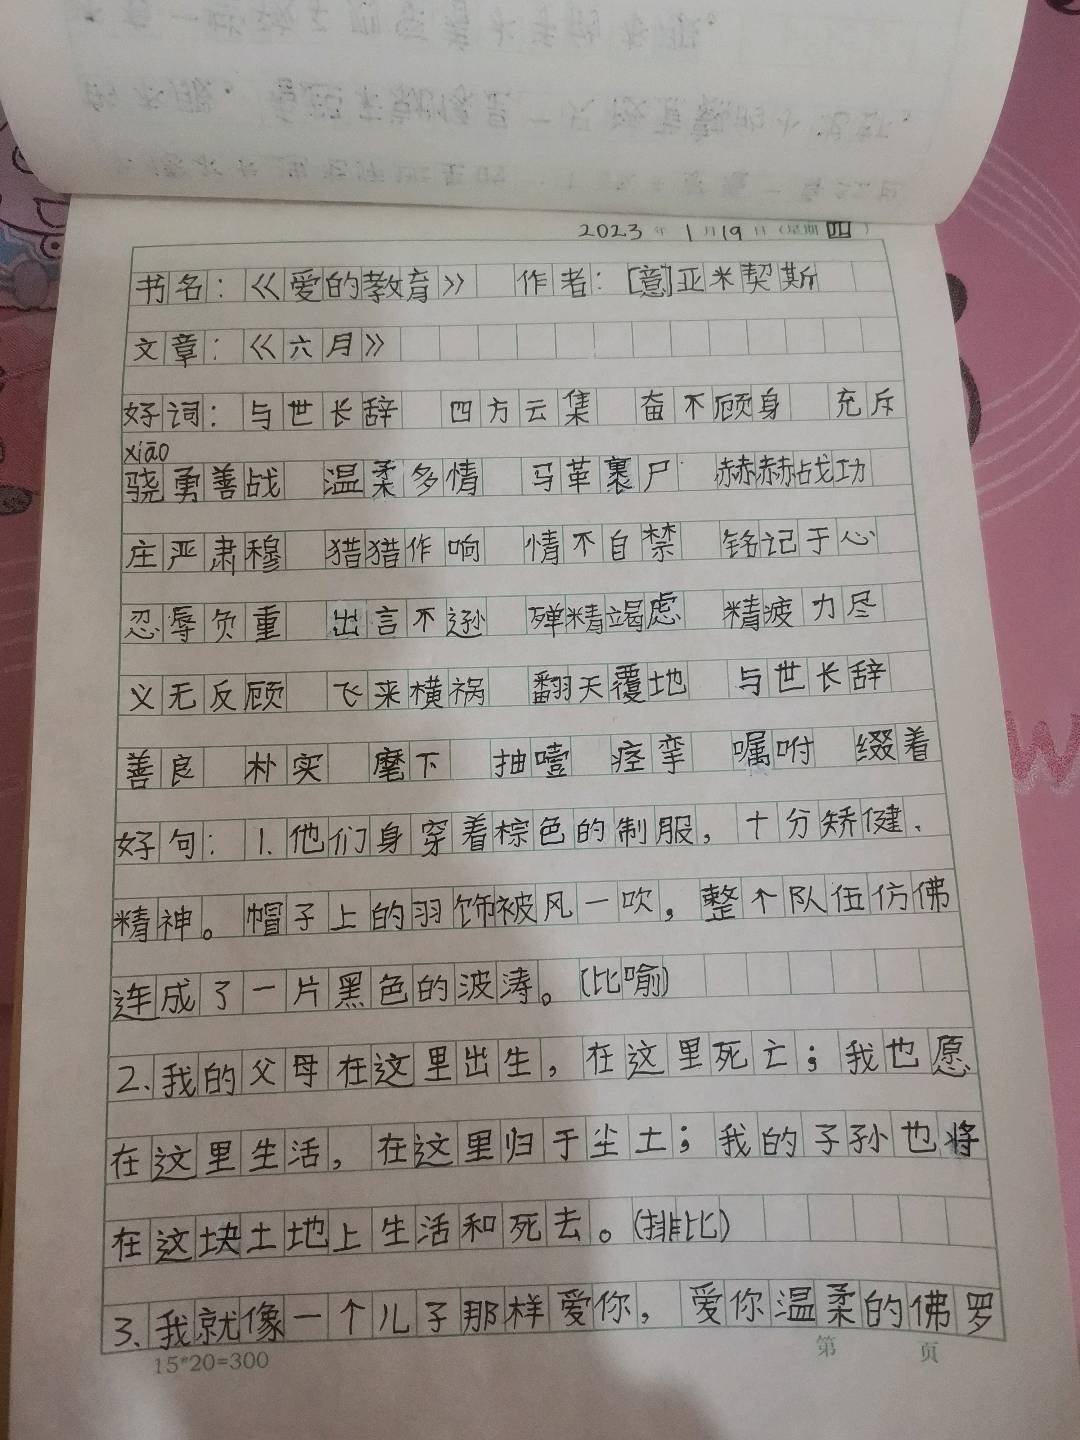 2023年1月19日(星期四)
书名：《爱的教育》 作者：[意]亚米契斯
文章：《六月》
好词：与世长辞 四方云集 奋不顾身 充斥
xiāo
骁勇善战 温柔多情 马革裹尸 赫赫战功
庄严肃穆 猎猎作响 情不自禁 铭记于心
忍辱负重 出言不逊 殚精竭虑 精疲力尽
义无反顾 飞来横祸 翻天覆地 与世长辞
善良 朴实 麾下 抽噎 痉挛 嘱咐 缀着
好句：1.他们身穿着棕色的制服，十分矫健、
精神。帽子上的羽饰被风一吹，整个队伍仿佛
连成了一片黑色的波涛。(比喻)
2.我的父母在这里出生，在这里死亡；我也愿
在这里生活，在这里归于尘土；我的子孙也将
在这块土地上生活和死去。(排比)
3.我就像一个儿子那样爱你，爱你温柔的佛罗
15*20=300 第 页